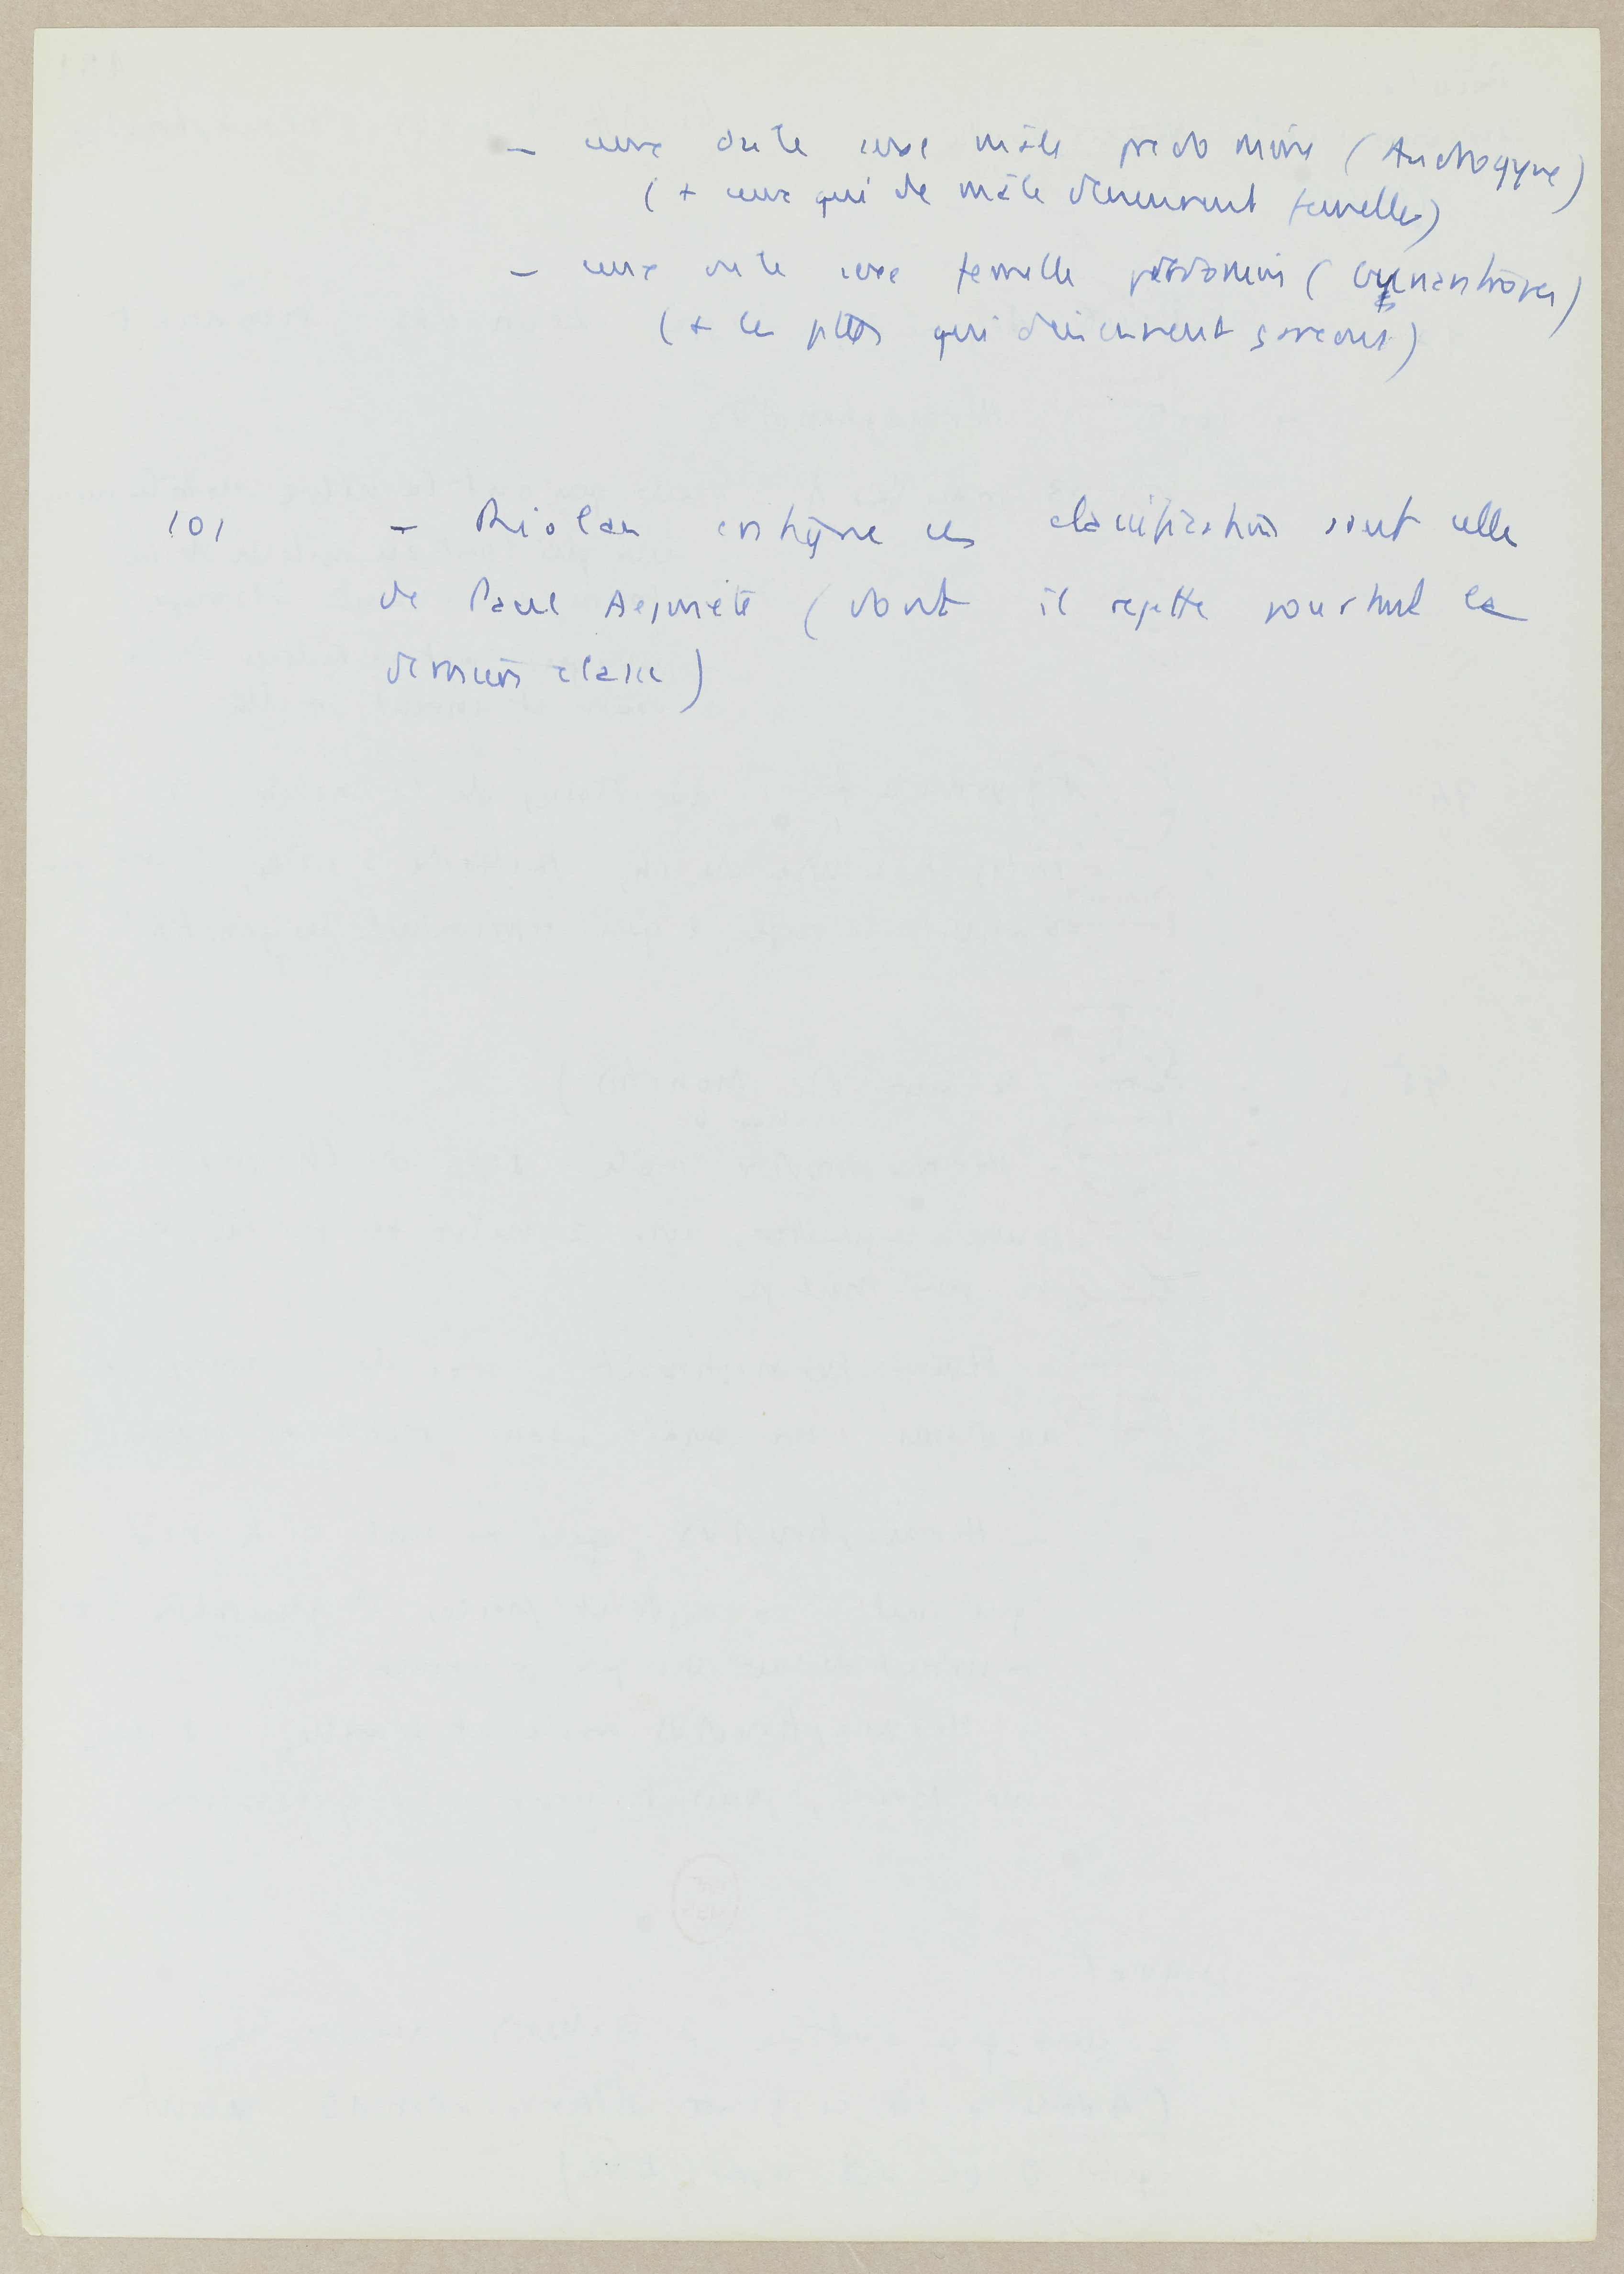 - ceux où le sexe mâle prédomine (Androgyne)
(+ ceux qui de mâle deviennent femelles)
- ceux où le sexe femelle prédomine (Gynanthropes)
(+ les filles qui deviennent garçons)
101 - Riolan critique ces classifications sauf celle
de Paul Aeginete (dont il rejette pourtant la
dernière classe)